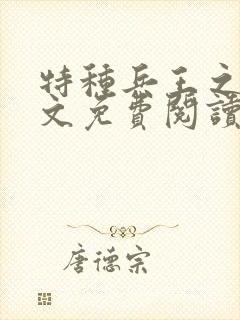 特種兵王之
文免費閱讀
唐德宗